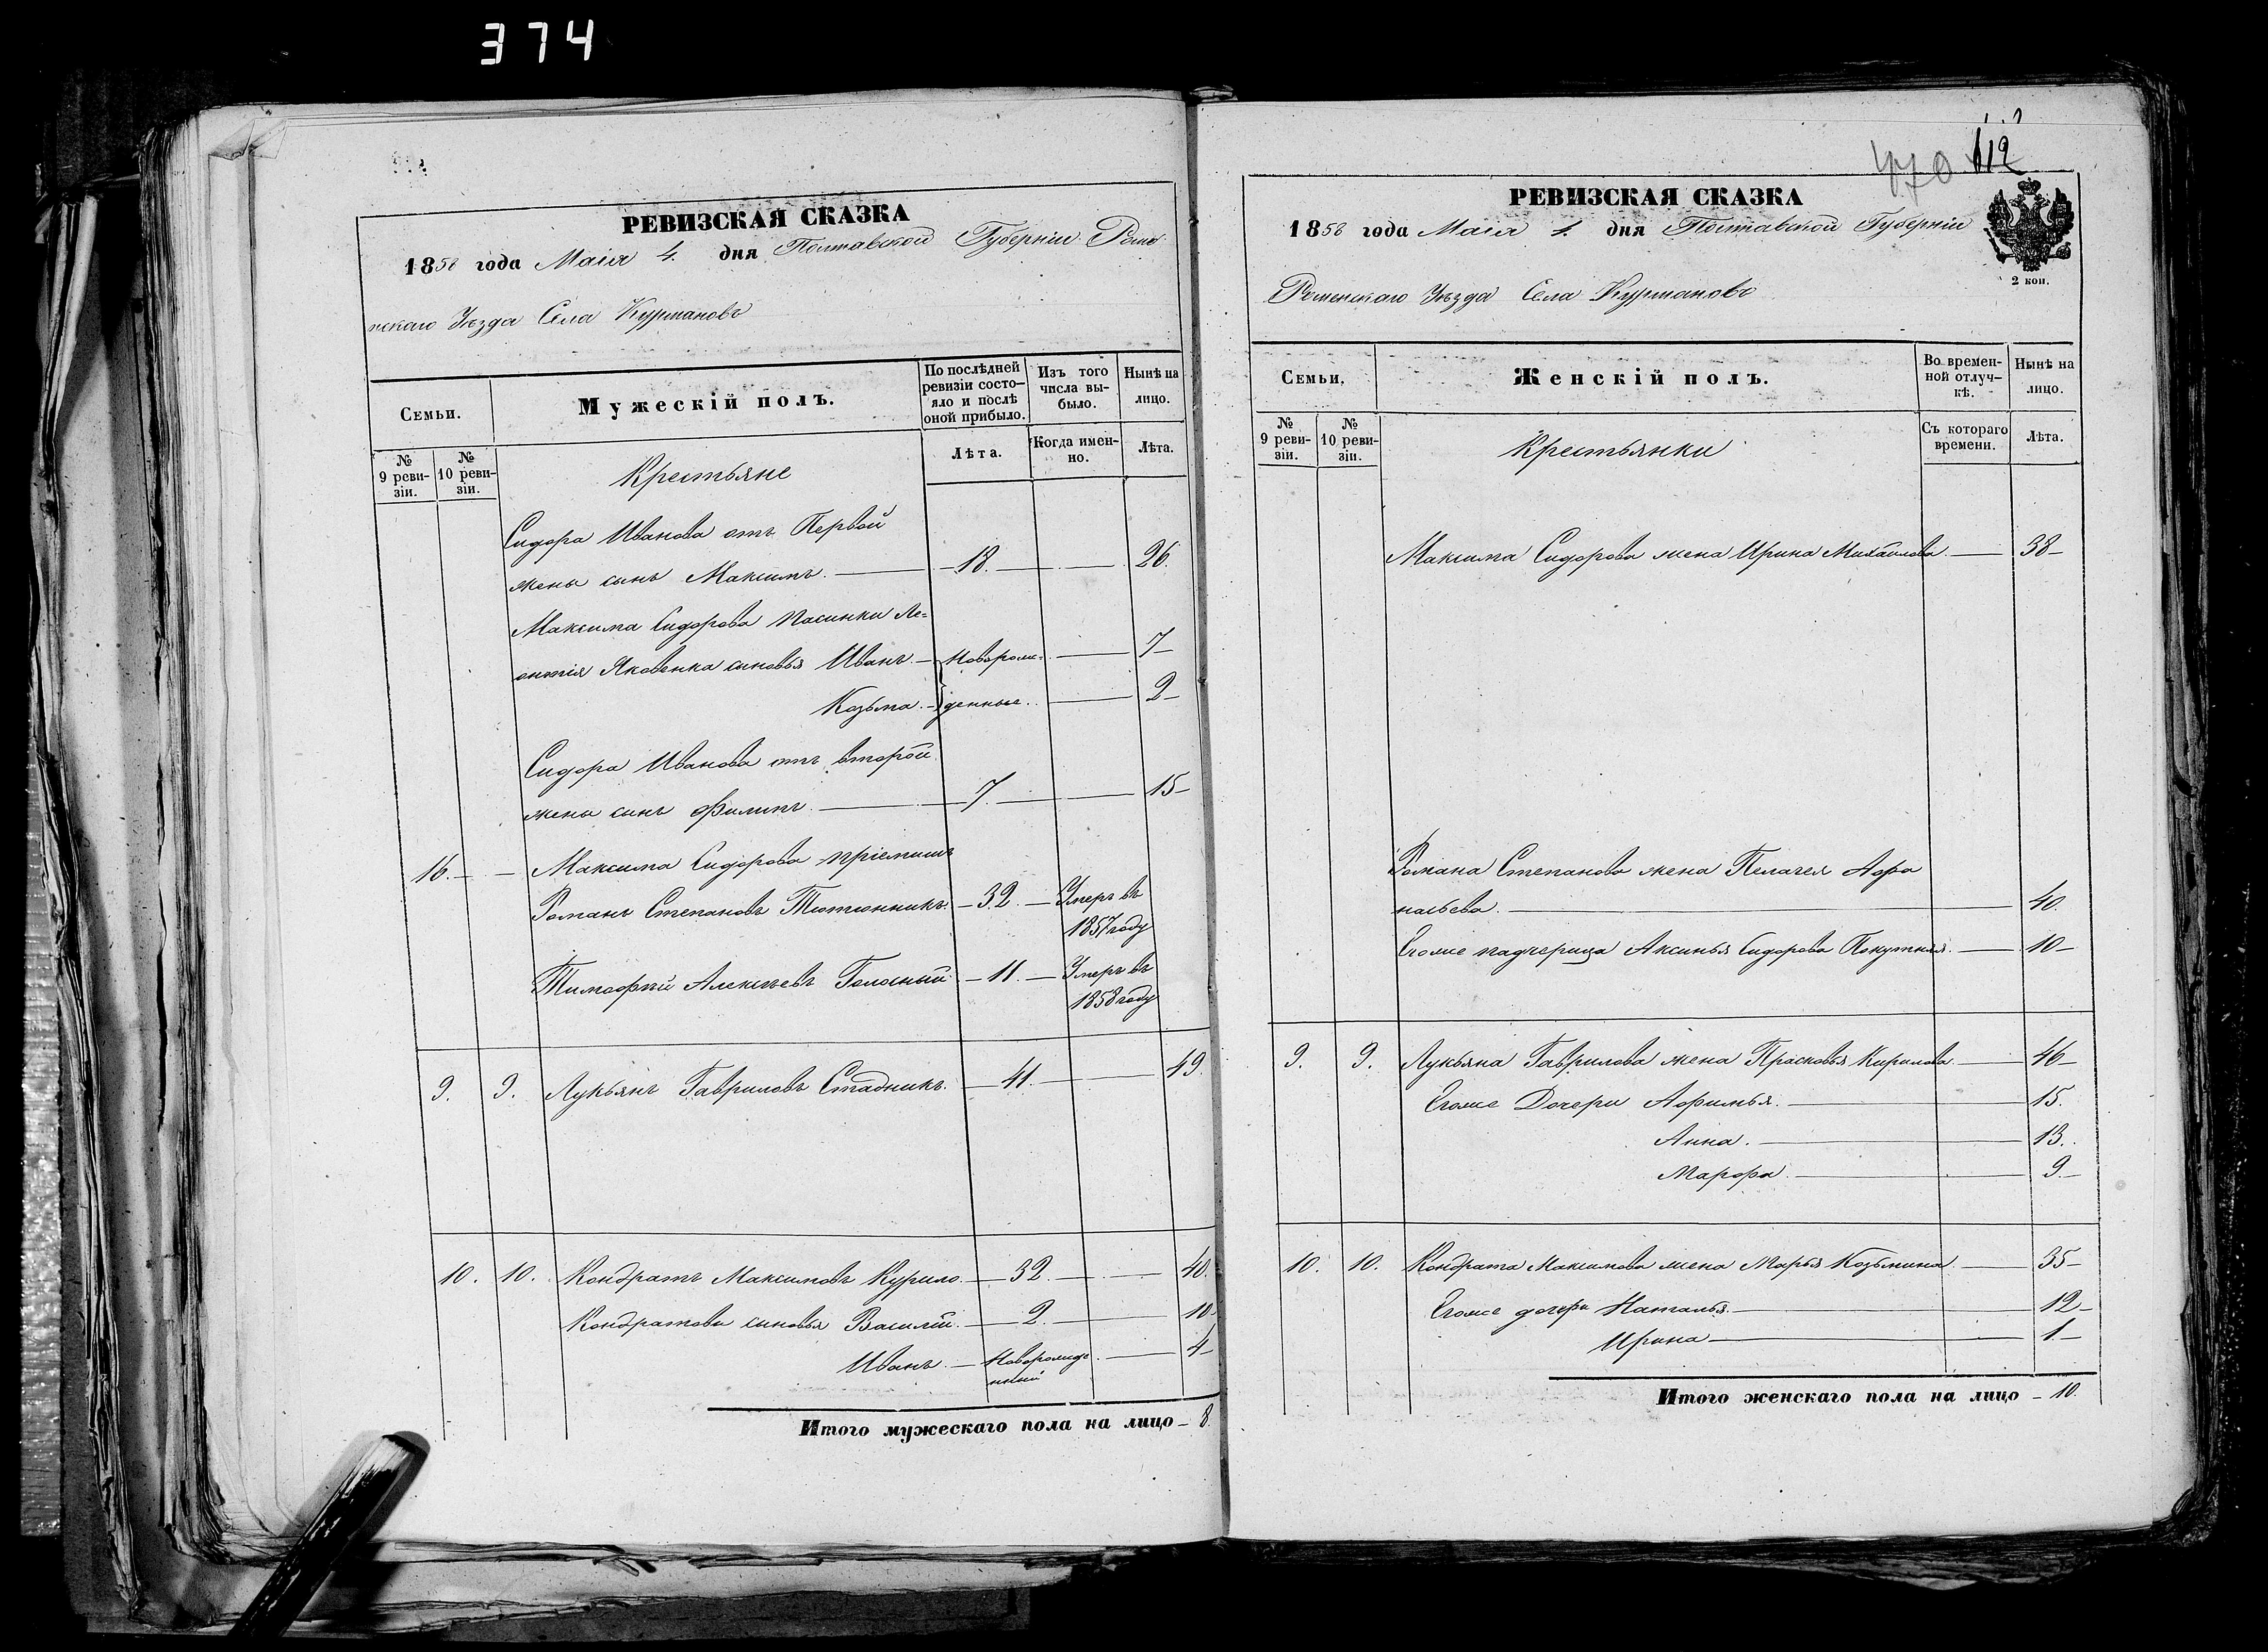 374
РЕВИЗСКАЯ СКАЗКА
1858 года Маія 4. дня Полтавской Губерніи Роме-
нскаго Уѣзда Села Курмановъ
Семьи.
Мужескій полъ.
По послѣдней ревизіи состо-
яло и послѣ
оной прибыло.
Изъ того
числа вы-
было.
Нынѣ на
лицо.
№
9 реви-
зіи.
№
10 реви-
зіи.
Крестьяне
Лѣта.
Когда имен-
но.
Лѣта.
Сидора Иванова отъ Первой
жены сынъ Максимъ. — 18. — 26.
Максима Сидорова пасинки Ле=
онтія Яковенка сыновья Иванъ. — Новорож= — 7 —
Козьма. — денные. — 2 —
Сидора Иванова отъ второй
жены сынъ Филипъ. — 7. — 15 —
16. — — Максима Сидорова пріемышъ
Романъ Степановъ Тютюнникъ. — 32. — Умеръ въ
1857 году
Тимофѣй Алексѣевъ Голосный. — 11. — Умеръ въ
1858 году
9. 9. Лукьянъ Гавриловъ Стадникъ. — 41. — 49.
10. 10. Кондратъ Максимовъ Курило. — 32. — 40.
Кондратовы сыновья Василій. — 2. — 10.
Иванъ. — Новорожде — 4 —
нный
Итого мужескаго пола на лицо — 8.
470 112
РЕВИЗСКАЯ СКАЗКА
1858 года Маія 4. дня Полтавской Губерніи
2 коп.
Роменскаго Уѣзда Села Курмановъ
Семьи.
Женскій полъ.
Во времен-
ной отлуч-
кѣ.
Нынѣ на
лицо.
№
9 реви-
зіи.
№
10 реви-
зіи.
Крестьянки
Съ котораго
времени.
Лѣта.
Максима Сидорова жена Ирина Михайлова. — 38 —
Романа Степанова жена Пелагея Афа
насьева. — 40.
Егоже падчерица Аксинья Сидорова Покутняя. — 10 —
9. 9. Лукьяна Гаврилова жена Прасковья Кирилова. — 46 —
Егоже Дочери Афимья. — 15.
Анна. — 13.
Марфа. — 9. —
10. 10. Кондрата Максимова жена Марья Козьмина. — 35 —
Егоже дочери Наталья. — 12 —
Ирина — 1 —
Итого женскаго пола на лицо — 10.